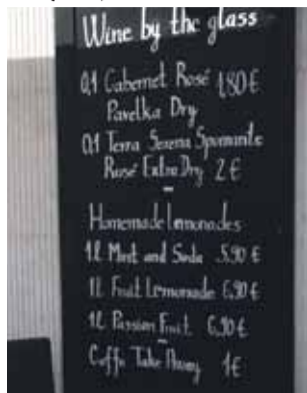 Wine by the glass
0,1 Cabernet Rosé 1,80 €
Pavelka Dry
0,1 Terra Serena Spumante
Rosé Extra Dry 2 €
Homemade Lemonades
1l Mint and Soda 5,90 €
1l Fruit Lemonade 6,90 €
1l Passion Fruit 6,90 €
Coffe Take Away 1€